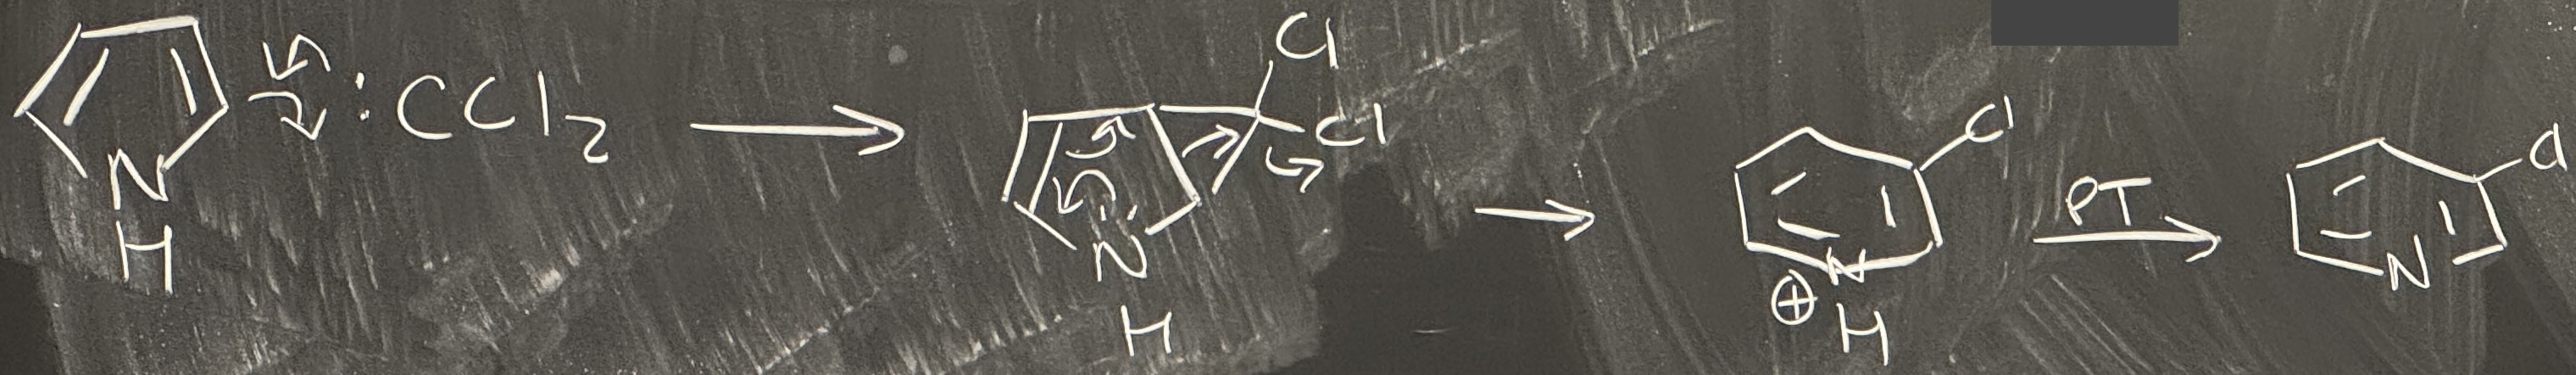 N
H
:CCl2
Cl
Cl
N
H
Cl
⊕
N
H
PT
Cl
N